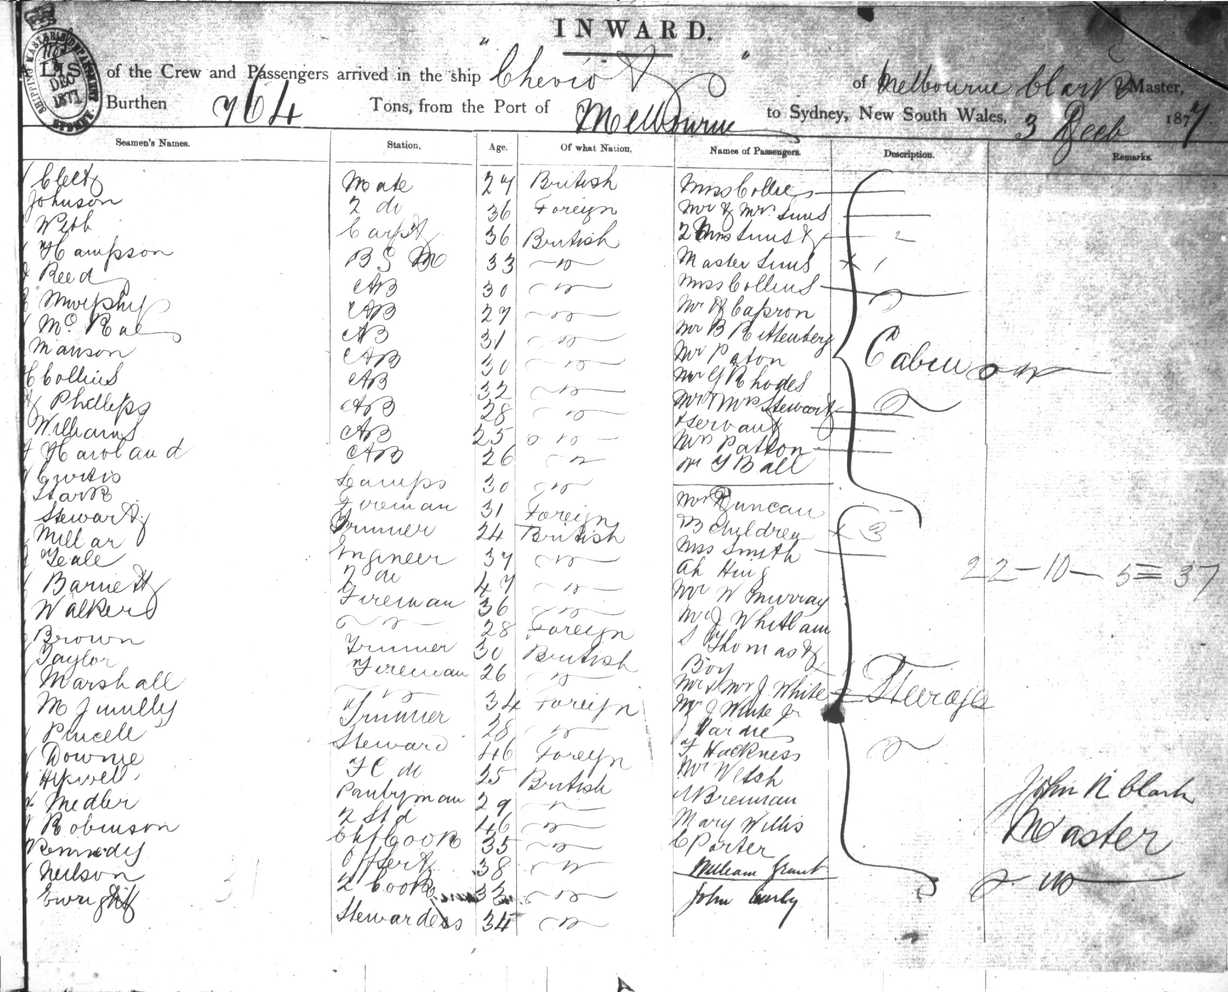 INWARD.
of the Crew and Passengers arrived in the ship "Cheviot" of Melbourne Clark Master,
Burthen 764 Tons, from the Port of Melbourne to Sydney, New South Wales, 3 Decb 1877
Seamen's Names. Station. Age. Of what Nation. Names of Passengers. Description. Remarks.
Mate 27 British Miss Collies
Johnson 2 do 36 Foreign Mr & Mrs Sims
Carpt 36 British 2 Miss Sims 2
Hampson B S M 33 do Master Sims 1
Reed AB 30 do Miss Collins
Murphy AB 27 do Mr H Capron
McRae AB 31 do Mr B Rittenberg
Manson AB 30 do Mr Paton
Collins AB 32 do Mr G Rhodes
Phillips AB 28 do Mr & Mrs Stewart
Williams AB 25 do Servant
Haroland AB 26 do Mrs Patton
Curtis Lamps 30 do Mr Ball
Cabin
Stark Fireman 31 Foreign Mrs Duncan
Stewart Trimmer 24 British 3 Children 3
Millar Engineer 37 do Miss Smith
Teale 2 do 47 do Ah Hing
22-10-5=37
Barnett Fireman 36 Mr W Murray
Walkers 28 Foreign Mr J Whitham
Brown Trimmer 30 British Thomas
Taylor Fireman 26 do Boy
Marshall do 34 Foreign Mr & Mrs J White
Steerage
Trimmer 28 do Mr J White Jr
Steward 46 Foreign
Downie F C do 25 British F Hackness
Hipwell Pantryman 29 do Mr Welsh
Medler 2 Std 46 do Brennan
Robinson Chf Cook 35 do Mary Willis
Kennedy 38 do C Porter
Neilson 2 Cook 32 do William Grant
Stewardess 34 do John
John N Clark
Master